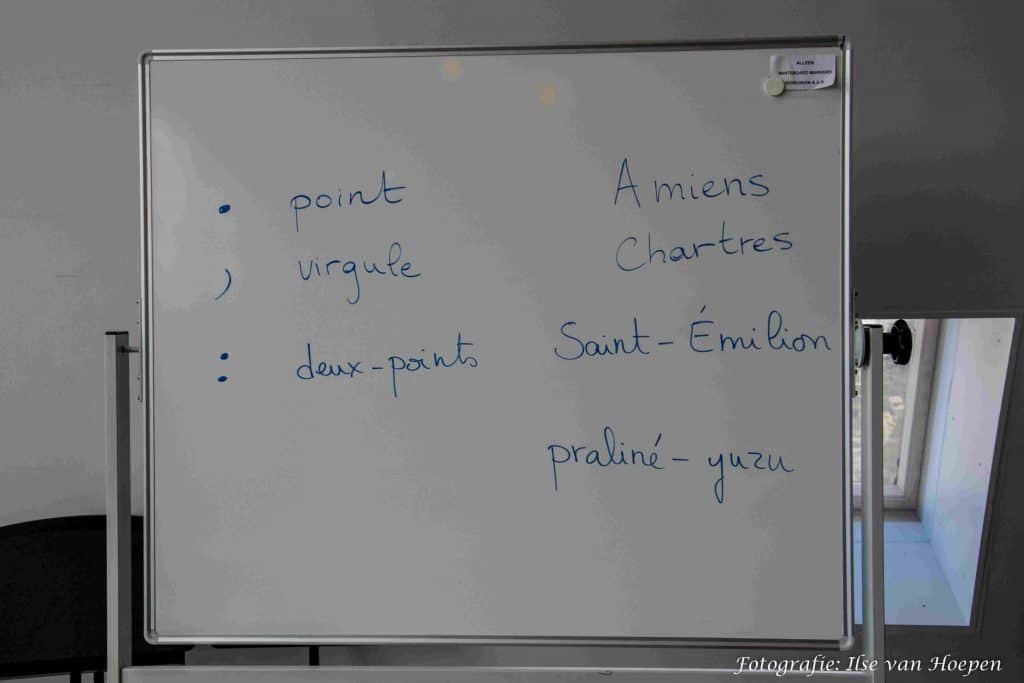 ALLEEN
WHITEBOARD MARKERS
. point
, virgule
: deux-points
Amiens
Chartres
Saint-Émilion
praliné - yuzu
Fotografie: Ilse van Hoepen